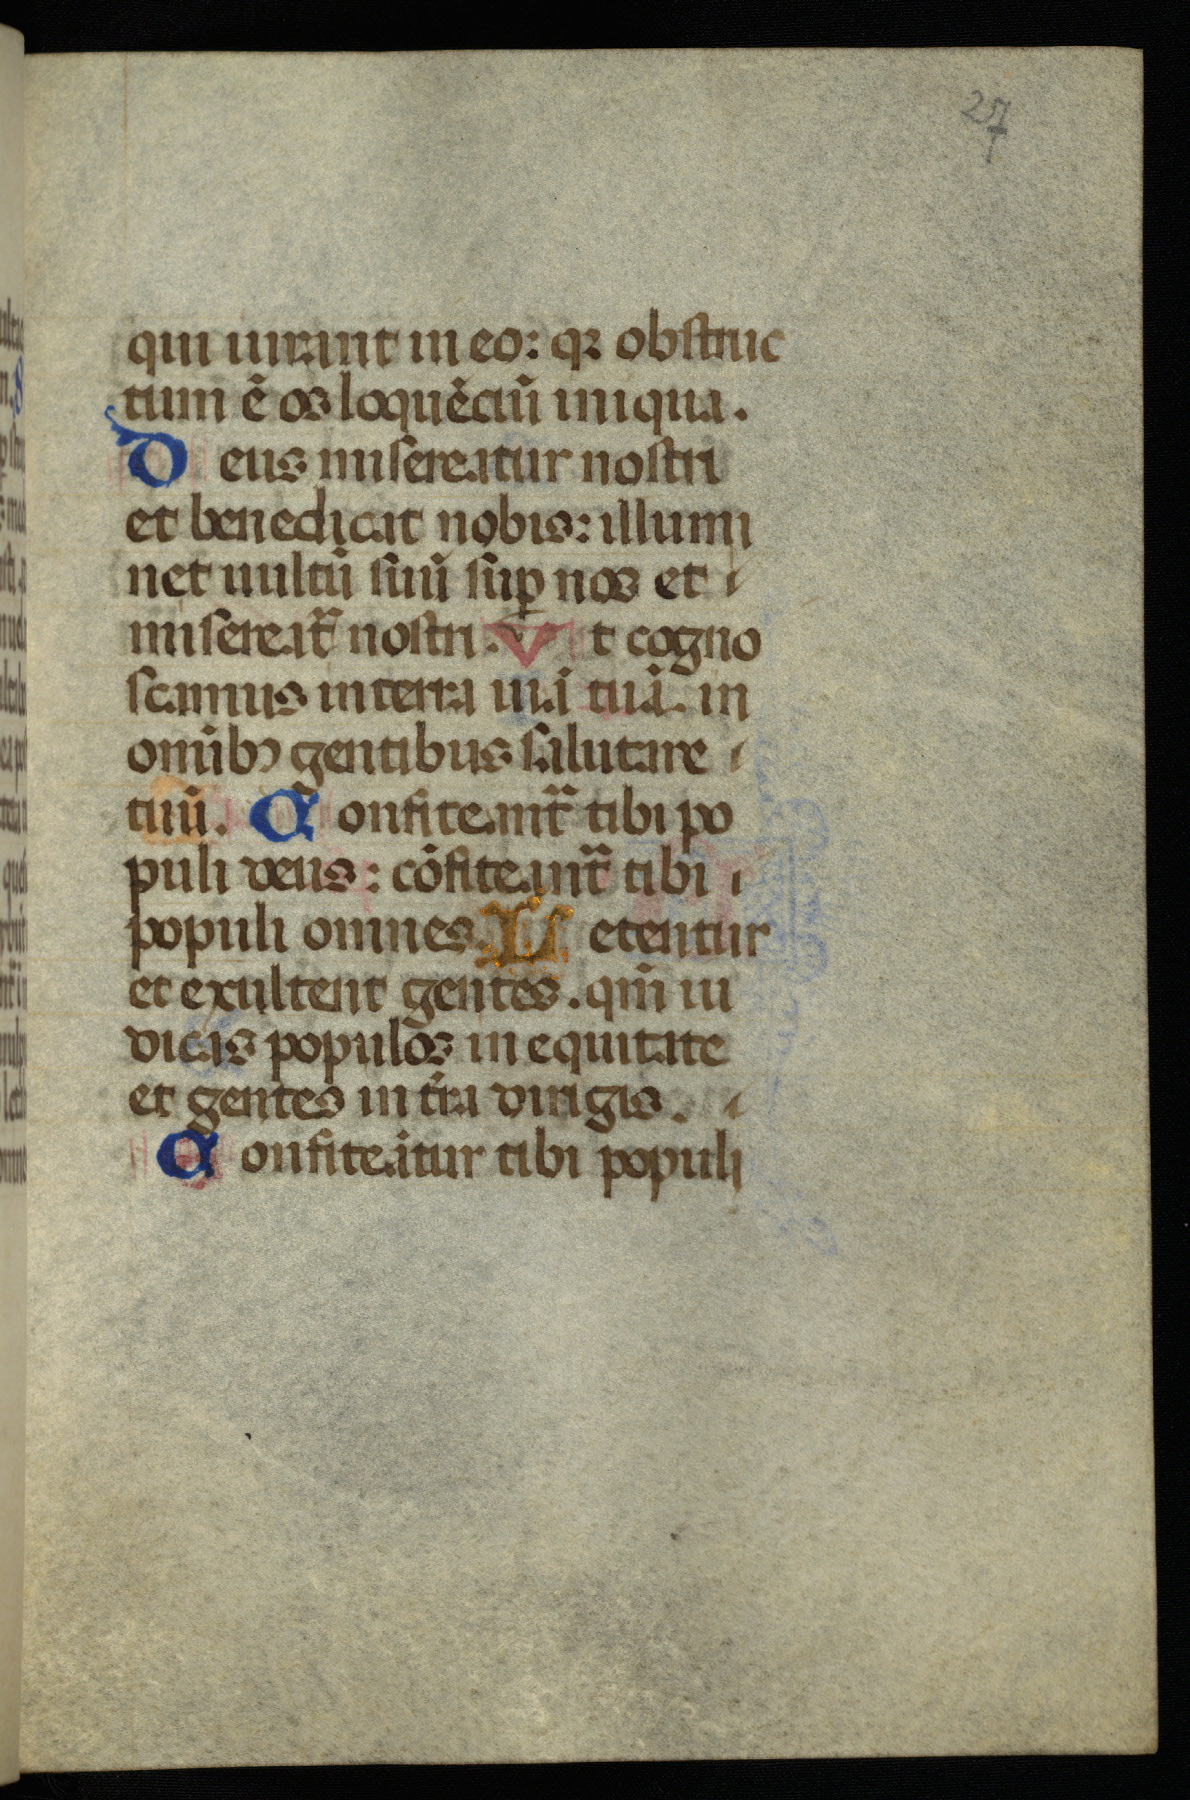 27
qui iurant in eo: qꝛ obstruc
tum ē os loquēciū iniqua.
Deus misereatur nostri
et benedicat nobis: illumi
net uultū suū sup̄ nos et
misereat᷑ nostri. Vt cogno
scamus in terra uiā tuā. in
omībꝰ gentibus salutare
tuū. Confiteant᷑ tibi po
puli deus: cōfiteant᷑ tibi
populi omnes. Letentur
et exultent gentes. qm̄ iu
dicas populos in equitate
et gentes in t̄ra dirigis.
Confiteātur tibi populi